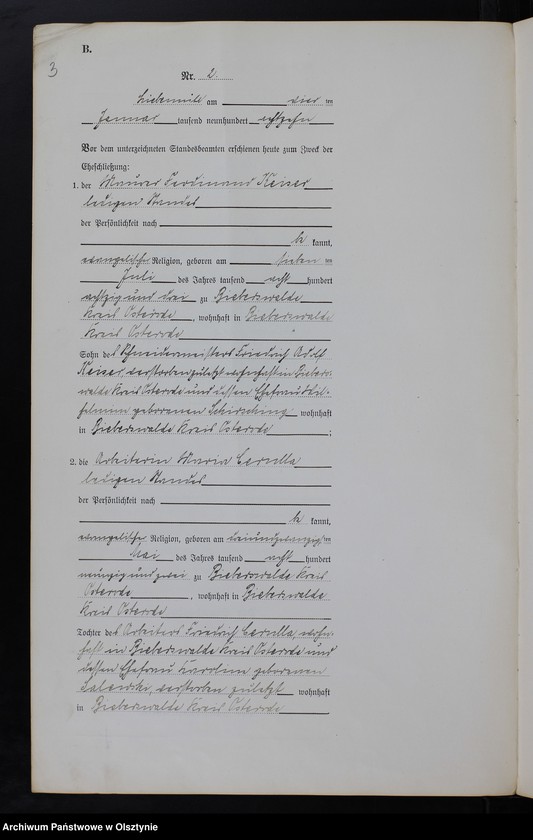 B.
3
Nr. 2.
Liebemühl am vier ten
Januar tausend neunhundert achtzehn
Vor dem unterzeichneten Standesbeamten erschienen heute zum Zweck der
Eheschließung:
1. der Maurer Ferdinand Keiser
ledigen Standes
der Persönlichkeit nach
be kannt,
evangelischer Religion, geboren am sieben ten
Juli des Jahres tausend acht hundert
achtzig und drei zu Bieberswalde
Kreis Osterode, wohnhaft in Bieberswalde
Kreis Osterode
Sohn des Schneidermeisters Friedrich Adolf
Keiser, verstorben zuletzt wohnhaft in Biebers-
walde Kreis Osterode und dessen Ehefrau Wil-
helmine geborenen wohnhaft
in Bieberswalde Kreis Osterode ;
2. die Arbeiterin Maria
ledigen Standes
der Persönlichkeit nach
be kannt,
evangelischer Religion, geboren am dreiundzwanzig ten
Mai des Jahres tausend acht hundert
neunzig und zwei zu Bieberswalde Kreis
Osterode, wohnhaft in Bieberswalde
Kreis Osterode
Tochter des Arbeiters Friedrich wohn-
haft in Bieberswalde Kreis Osterode und
dessen Ehefrau Karoline geborenen
verstorben zuletzt wohnhaft
in Bieberswalde Kreis Osterode
Archiwum Państwowe w Olsztynie